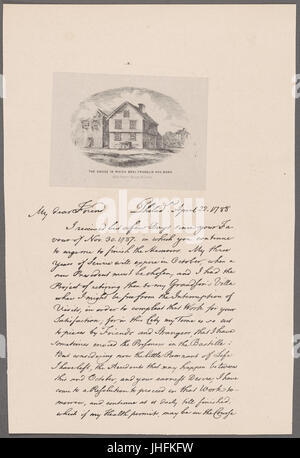 THE HOUSE IN WHICH BENJ. FRANKLIN WAS BORN
My dear Friend Philada. April 22. 1788
I received but a few Days since your Fa-
vour of Nov. 30. 1787. in which you continue
to urge me to finish the Memoirs. My three
Years of Service will expire in October, when a
new President must be chosen, and I had the
Project of retiring then to my Grandson's Villa
where I might be free from the Interruption of
Visits, in order to compleat that Work for your
Satisfaction; for in this City my Time is so cut
to pieces by Friends and Strangers that I have
sometimes envied the Prisoners in the Bastille.
But considering now the little Remnant of Life
I have left, the Accidents that may happen between
this and October, and your earnest Desire, I have
come to a Resolution to proceed in that Work to-
morrow, and continue at it daily till finished,
which if my Health permits may be in the Course
alamy
Image ID: JHFKFW
www.alamy.com